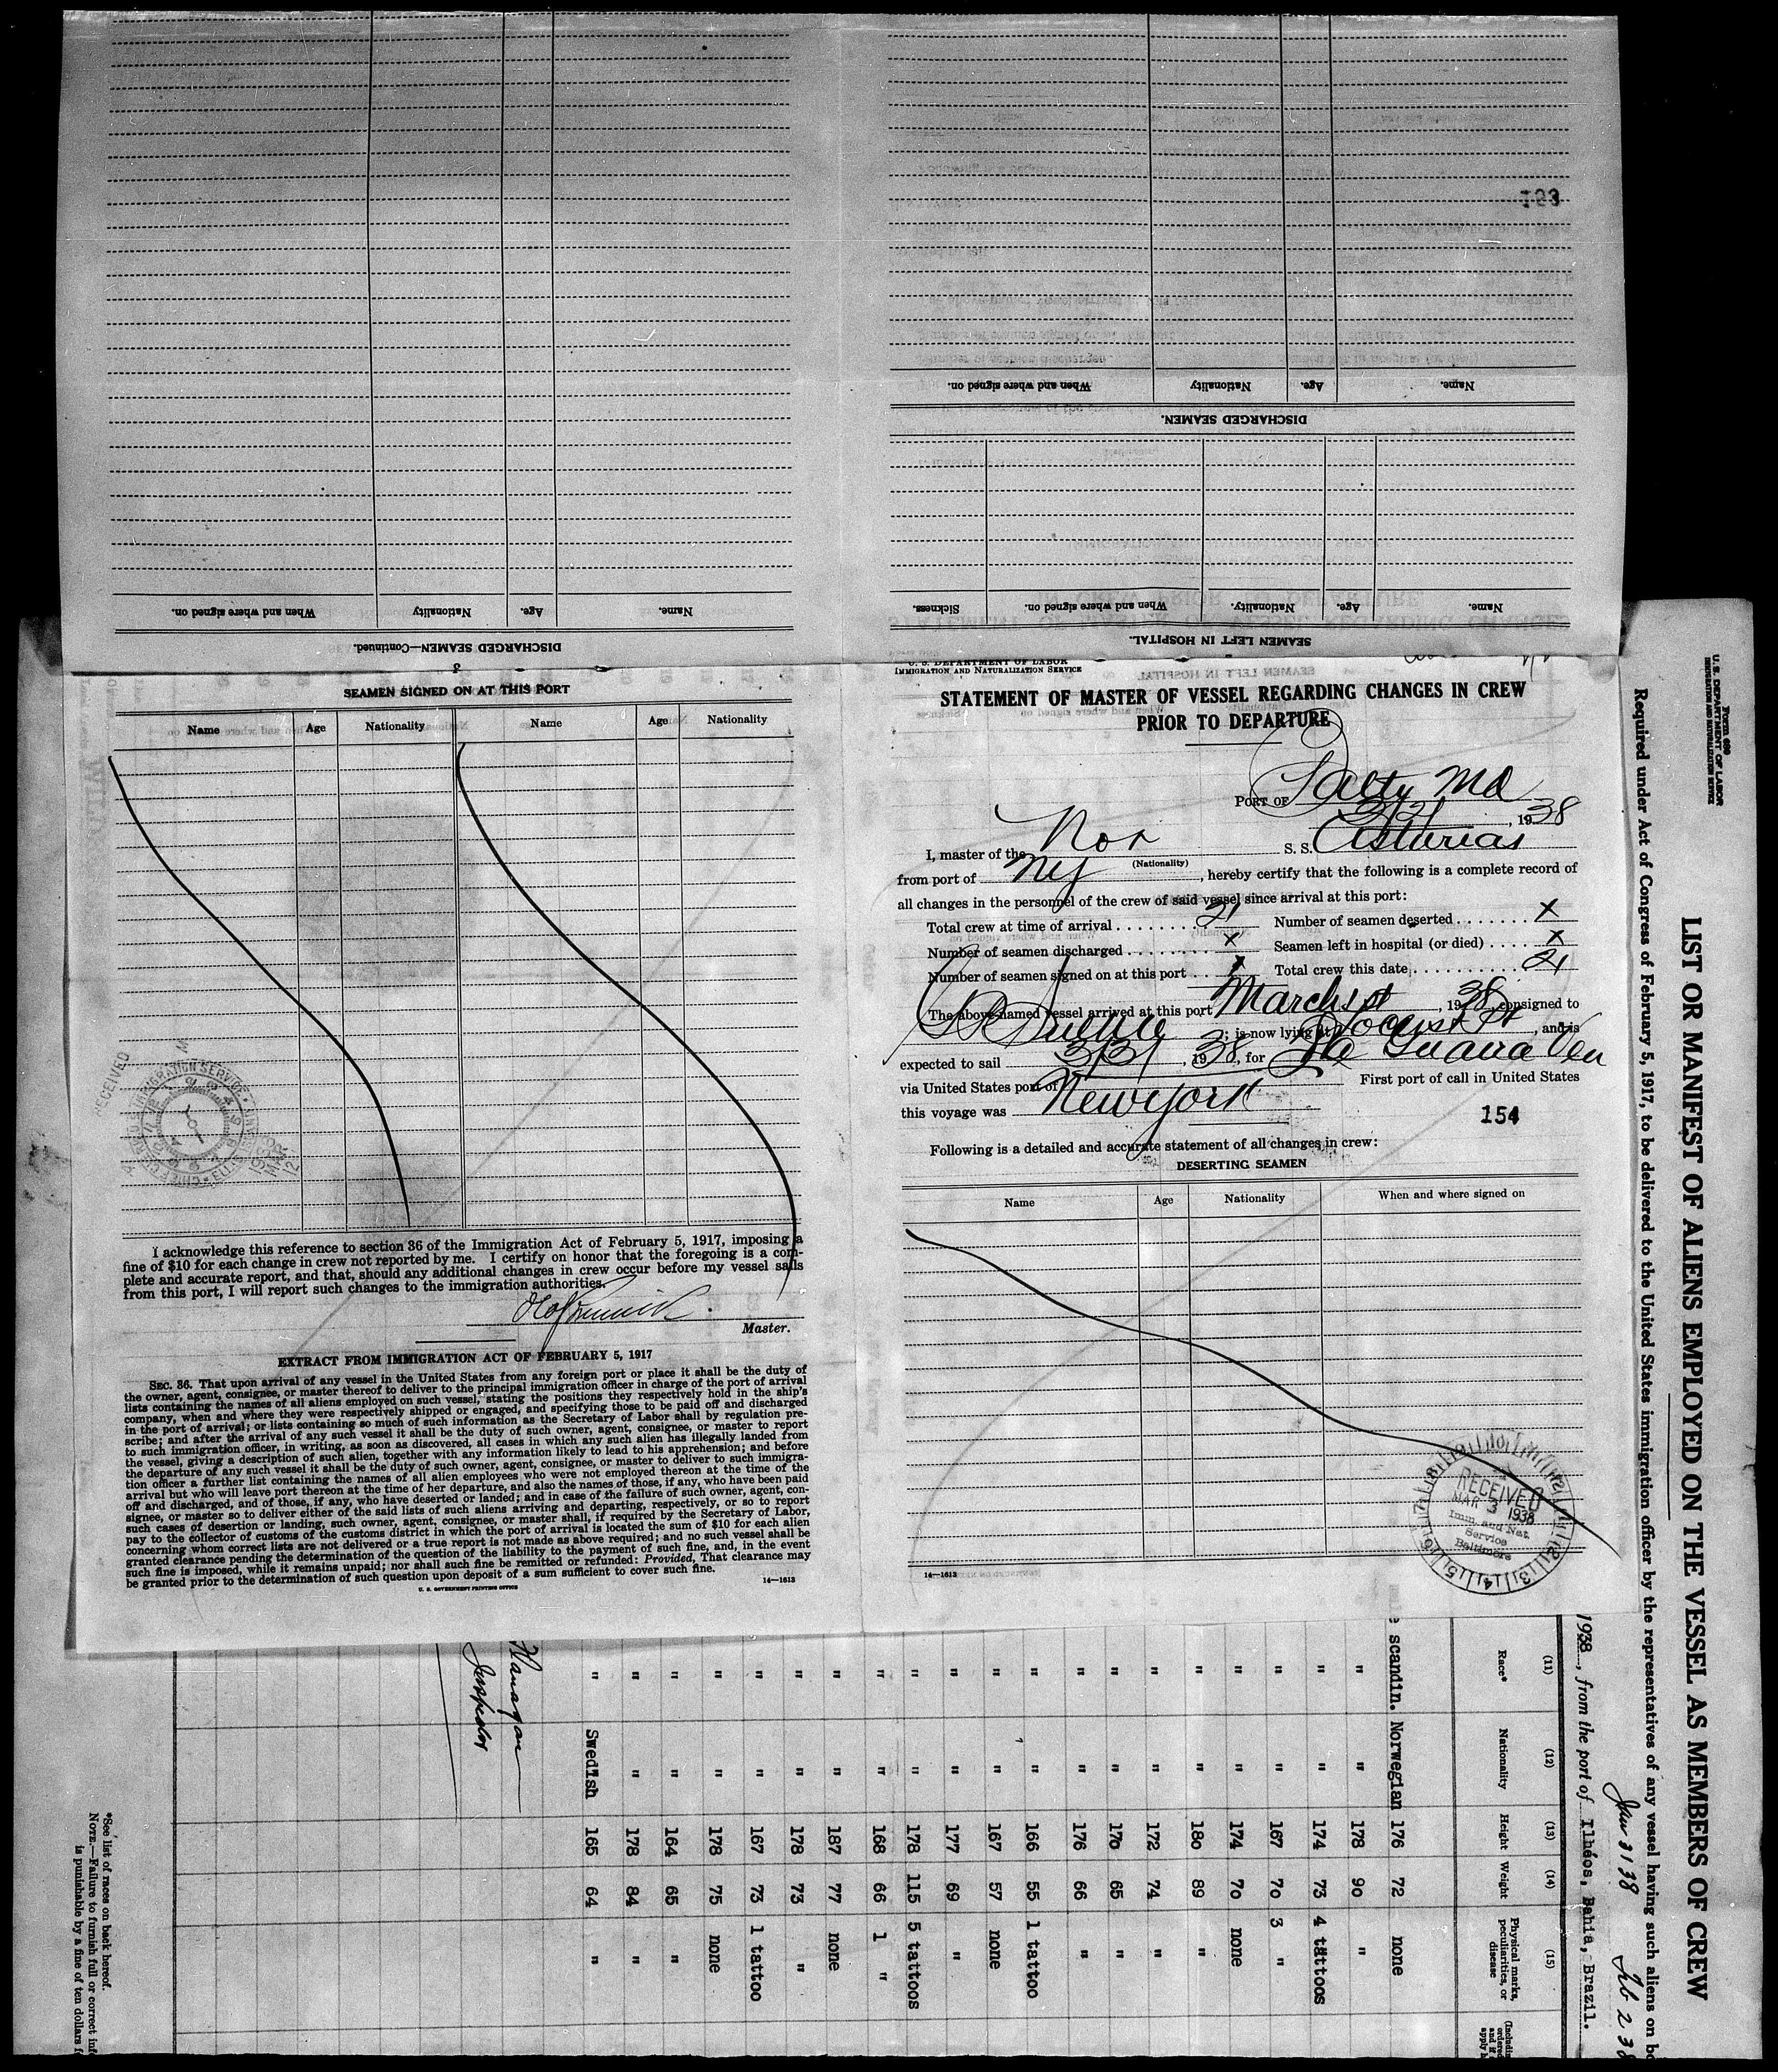 153
Name.
Age.
Nationality
When and where signed on.
DISCHARGED SEAMEN.
SEAMEN LEFT IN HOSPITAL.
Name.
Age.
Nationality.
When and where signed on.
Sickness.
DISCHARGED SEAMEN—Continued.
Name.
Age.
Nationality
When and where signed on.
3
SEAMEN SIGNED ON AT THIS PORT
Name Age Nationality Name Age Nationality
I acknowledge this reference to section 36 of the Immigration Act of February 5, 1917, imposing a
fine of $10 for each change in crew not reported by me. I certify on honor that the foregoing is a com-
plete and accurate report, and that, should any additional changes in crew occur before my vessel sails
from this port, I will report such changes to the immigration authorities.
Master.
EXTRACT FROM IMMIGRATION ACT OF FEBRUARY 5, 1917
SEC. 36. That upon arrival of any vessel in the United States from any foreign port or place it shall be the duty of
the owner, agent, consignee, or master thereof to deliver to the principal immigration officer in charge of the port of arrival
lists containing the names of all aliens employed on such vessel, stating the positions they respectively hold in the ship's
company, when and where they were respectively shipped or engaged, and specifying those to be paid off and discharged
in the port of arrival; or lists containing so much of such information as the Secretary of Labor shall by regulation pre-
scribe; and after the arrival of any such vessel it shall be the duty of such owner, agent, consignee, or master to report
to such immigration officer, in writing, as soon as discovered, all cases in which any such alien has illegally landed from
the vessel, giving a description of such alien, together with any information likely to lead to his apprehension; and before
the departure of any such vessel it shall be the duty of such owner, agent, consignee, or master to deliver to such immigra-
tion officer a further list containing the names of all alien employees who were not employed thereon at the time of the
arrival but who will leave port thereon at the time of her departure, and also the names of those, if any, who have been paid
off and discharged, and of those, if any, who have deserted or landed; and in case of the failure of such owner, agent, con-
signee, or master so to deliver either of the said lists of such aliens arriving and departing, respectively, or so to report
such cases of desertion or landing, such owner, agent, consignee, or master shall, if required by the Secretary of Labor,
pay to the collector of customs of the customs district in which the port of arrival is located the sum of $10 for each alien
concerning whom correct lists are not delivered or a true report is not made as above required; and no such vessel shall be
granted clearance pending the determination of the question of the liability to the payment of such fine, and, in the event
such fine is imposed, while it remains unpaid; nor shall such fine be remitted or refunded: Provided, That clearance may
be granted prior to the determination of such question upon deposit of a sum sufficient to cover such fine.
U. S. GOVERNMENT PRINTING OFFICE 14—1613
U. S. DEPARTMENT OF LABOR
IMMIGRATION AND NATURALIZATION SERVICE
STATEMENT OF MASTER OF VESSEL REGARDING CHANGES IN CREW
PRIOR TO DEPARTURE
PORT OF Balty Md
, 1938
I, master of the Nor S. S. Asturias
(Nationality)
from port of NY , hereby certify that the following is a complete record of
all changes in the personnel of the crew of said vessel since arrival at this port:
Total crew at time of arrival 21 Number of seamen deserted X
Number of seamen discharged X Seamen left in hospital (or died) X
Number of seamen signed on at this port X Total crew this date 21
The above named vessel arrived at this port March 1st , 1938, consigned to
; is now lying at Locust Pt , and is
expected to sail 3/3/ , 1938, for La Guaira Ven
via United States port of First port of call in United States
this voyage was New York
154
Following is a detailed and accurate statement of all changes in crew:
DESERTING SEAMEN
Name Age Nationality When and where signed on
14—1613
RECEIVED
MAR 3 1938
Imm. and Nat.
Service
Baltimore
Form 689
U. S. DEPARTMENT OF LABOR
IMMIGRATION AND NATURALIZATION SERVICE
LIST OR MANIFEST OF ALIENS EMPLOYED ON THE VESSEL AS MEMBERS OF CREW
Required under Act of Congress of February 5, 1917, to be delivered to the United States immigration officer by the representatives of any vessel having such aliens on bo
Jan 31 38 Feb 2 38
1938, from the port of Ilhéos, Bahia, Brazil.
(11) (12) (13) (14) (15)
Race* Nationality Height Weight Physical marks, peculiarities, or disease
e scandin. Norwegian 176 72 none
" " 178 90 "
" " 174 73 4 tattoos
" " 167 70 3 "
" " 174 70 none
" " 180 89 "
" " 172 74 "
" " 170 65 "
" " 176 66 "
" " 166 55 1 tattoo
" " 167 57 none
" " 177 69 "
" " 178 115 5 tattoos
" " 168 66 1 "
" " 187 77 none
" " 178 73 "
" " 167 73 1 tattoo
" " 178 75 none
" " 164 65 "
" " 178 84 "
" Swedish 165 64 "
Flanagan
Inspector
*See list of races on back hereof.
NOTE.—Failure to furnish full or correct inf
is punishable by a fine of ten dollars f